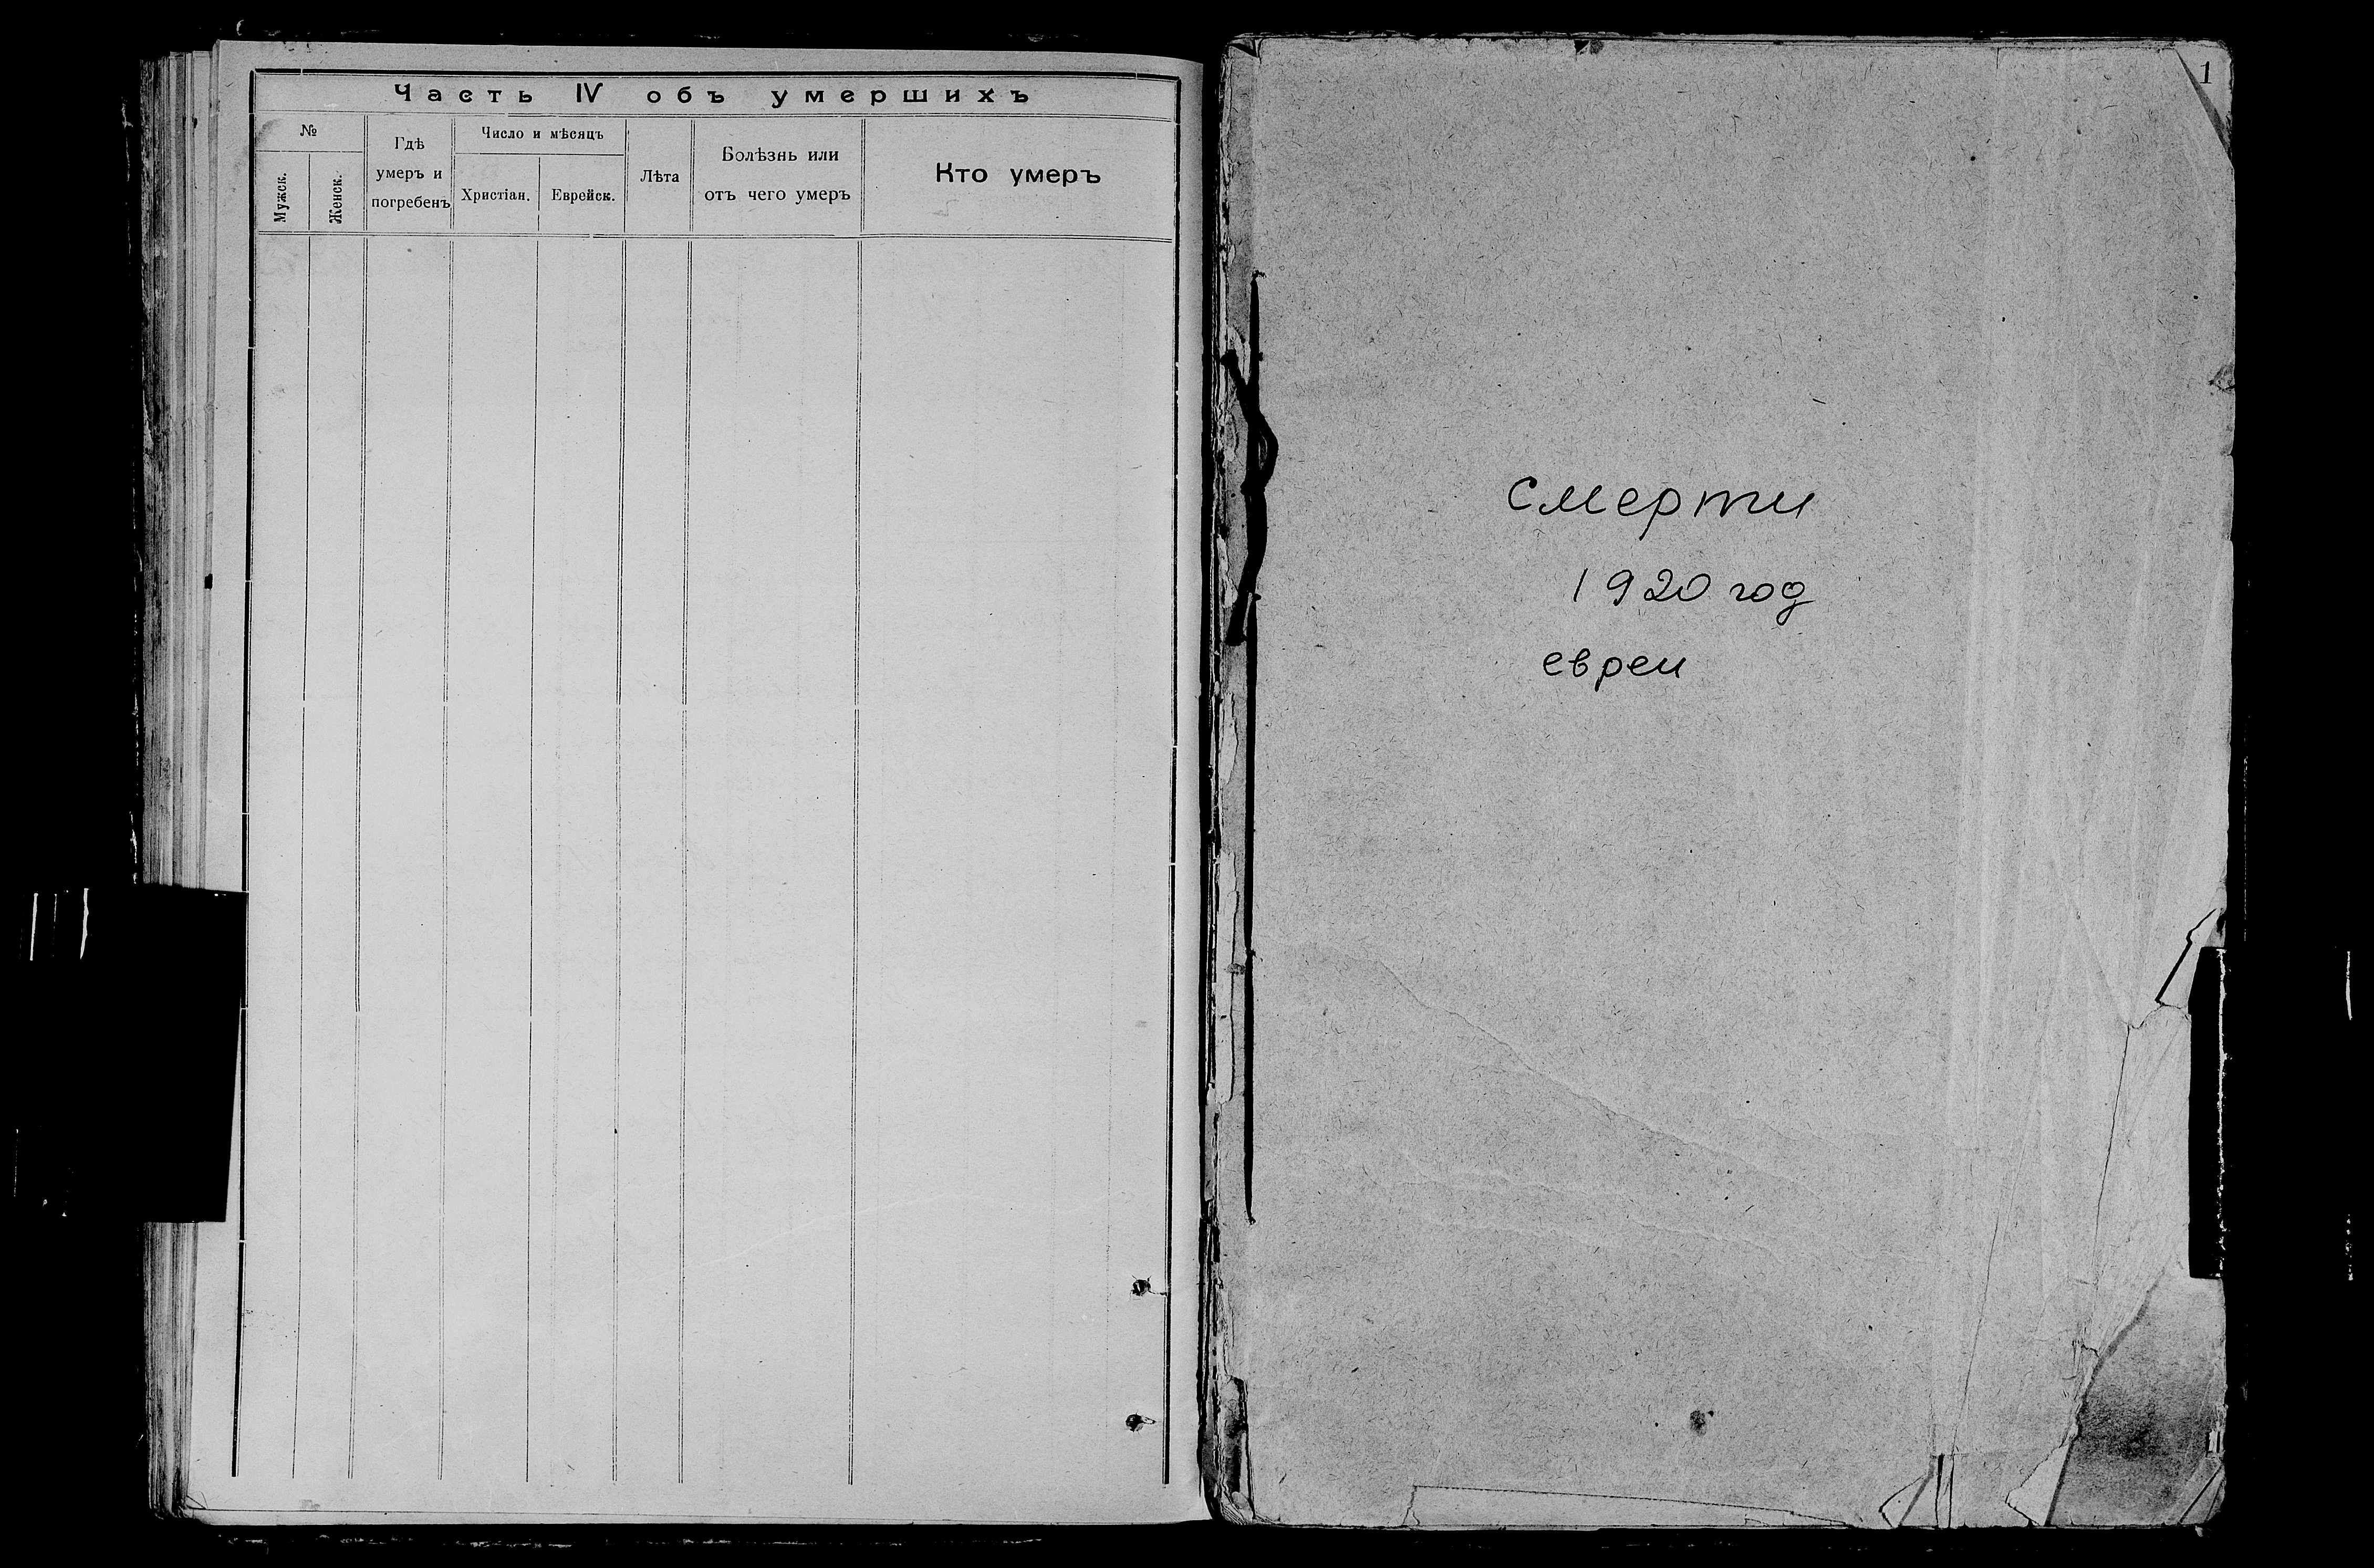 Часть IV объ умершихъ
№
Мужск.
Женск.
Гдѣ
умеръ и
погребенъ
Число и мѣсяцъ
Христіан.
Еврейск.
Лѣта
Болѣзнь или
отъ чего умеръ
Кто умеръ
1
смерти
1920 год
евреи